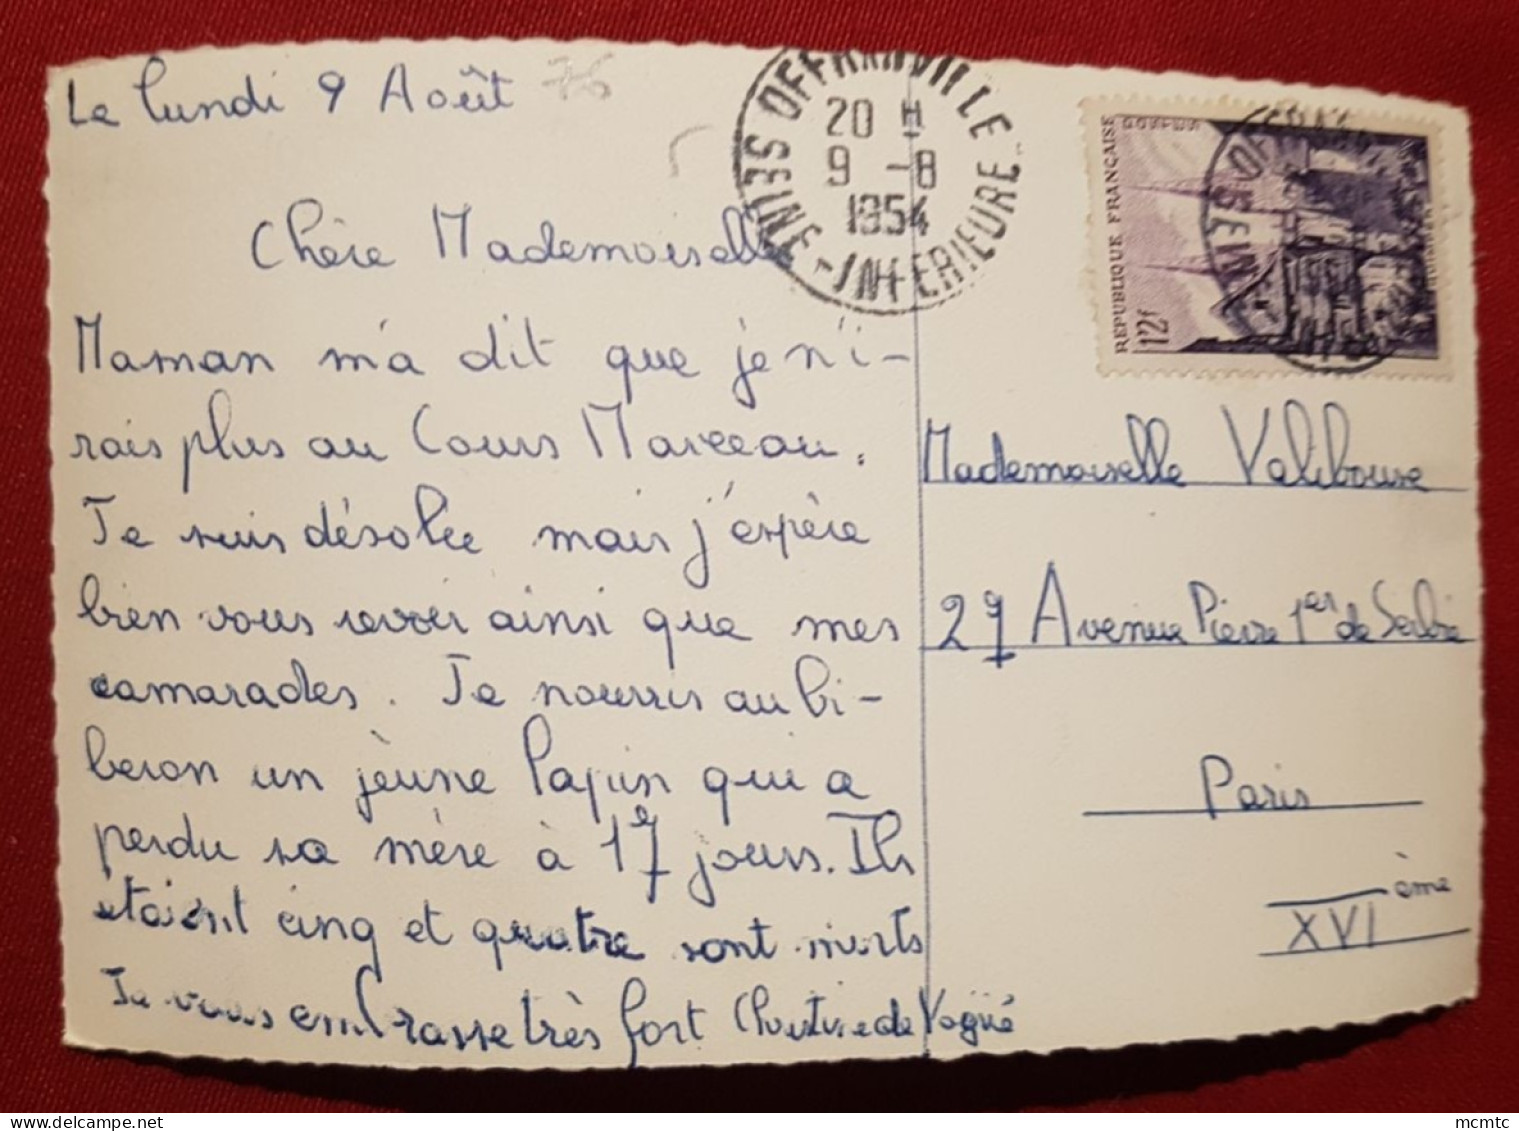 Le lundi 9 Août
76
Chère Mademoiselle
Maman m'a dit que je n'i-
rais plus au Cours Marceau.
Je suis désolée mais j'espère
bien vous revoir ainsi que mes
camarades. Je nourris au bi-
beron un jeune lapin qui a
perdu sa mère à 17 jours. Ils
étaient cinq et quatre sont morts
Je vous embrasse très fort Christine de Vogüé
OFFRANVILLE
20 H
9 -8
1954
SEINE-INFERIEURE
REPUBLIQUE FRANÇAISE
POSTES
12f
Mademoiselle Valibouse
27 Avenue Pierre 1er de Serbie
Paris
XVI ème
mcmtc